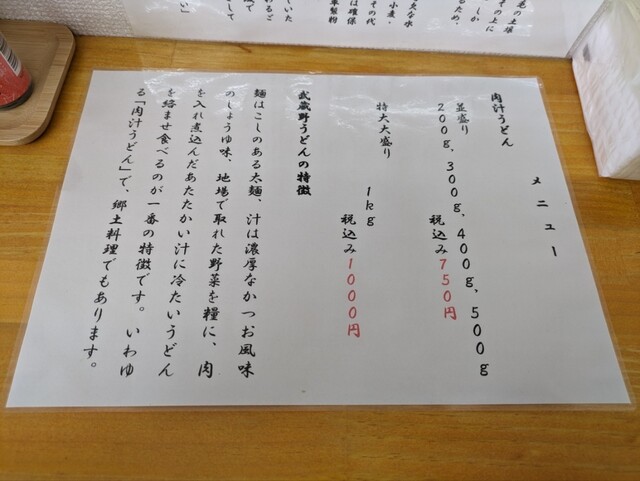 メニュー
肉汁うどん
並盛り
200g、300g、400g、500g
税込み750円
特大大盛り
1kg
税込み1000円
武蔵野うどんの特徴
麺はこしのある太麺、汁は濃厚なかつお風味
のしょうゆ味、地場で取れた野菜を糧に、肉
を入れ煮込んだあたたかい汁に冷たいうどん
を絡ませ食べるのが一番の特徴です。いわゆ
る「肉汁うどん」で、郷土料理でもあります。